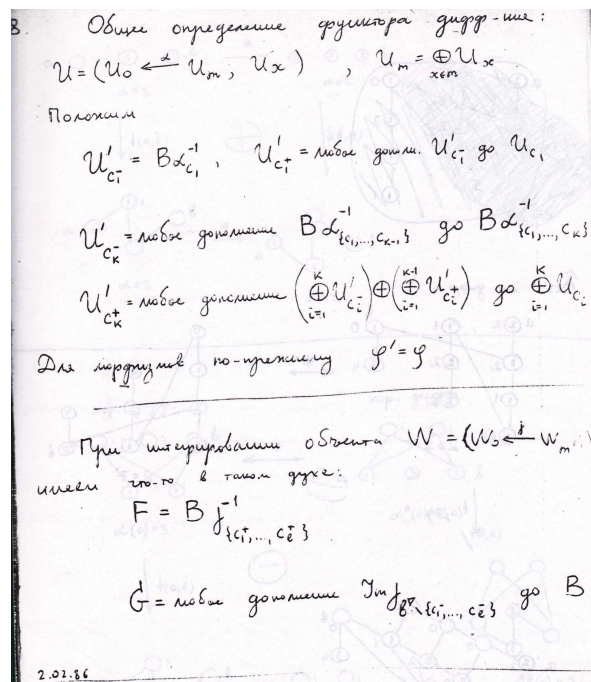 3. Общее определение функтора дифф-ние:
U = (U₀ ←α U_m, U_x), U_m = ⊕_{x∈m} U_x
Положим
U'_{c₁⁻} = Bα⁻¹_{c₁}, U'_{c₁⁺} = любое дополн. U'_{c₁⁻} до U_{c₁}
U'_{c_k⁻} = любое дополнение Bα⁻¹_{{c₁,...,c_{k-1}}} до Bα⁻¹_{{c₁,...,c_k}}
U'_{c_k⁺} = любое дополнение (⊕_{i=1}^{k} U'_{c_i⁻}) ⊕ (⊕_{i=1}^{k-1} U'_{c_i⁺}) до ⊕_{i=1}^{k} U_{c_i}
Для морфизмов по-прежнему φ' = φ
При интегрировании объекта W = (W₀ ←γ W_m
имеем что-то в таком духе:
F = Bγ⁻¹_{{c₁⁺,...,c_ℓ⁺}}
G = любое дополнение Im γ_{\{c₁⁻,...,c_ℓ⁻}} до B
2.02.86